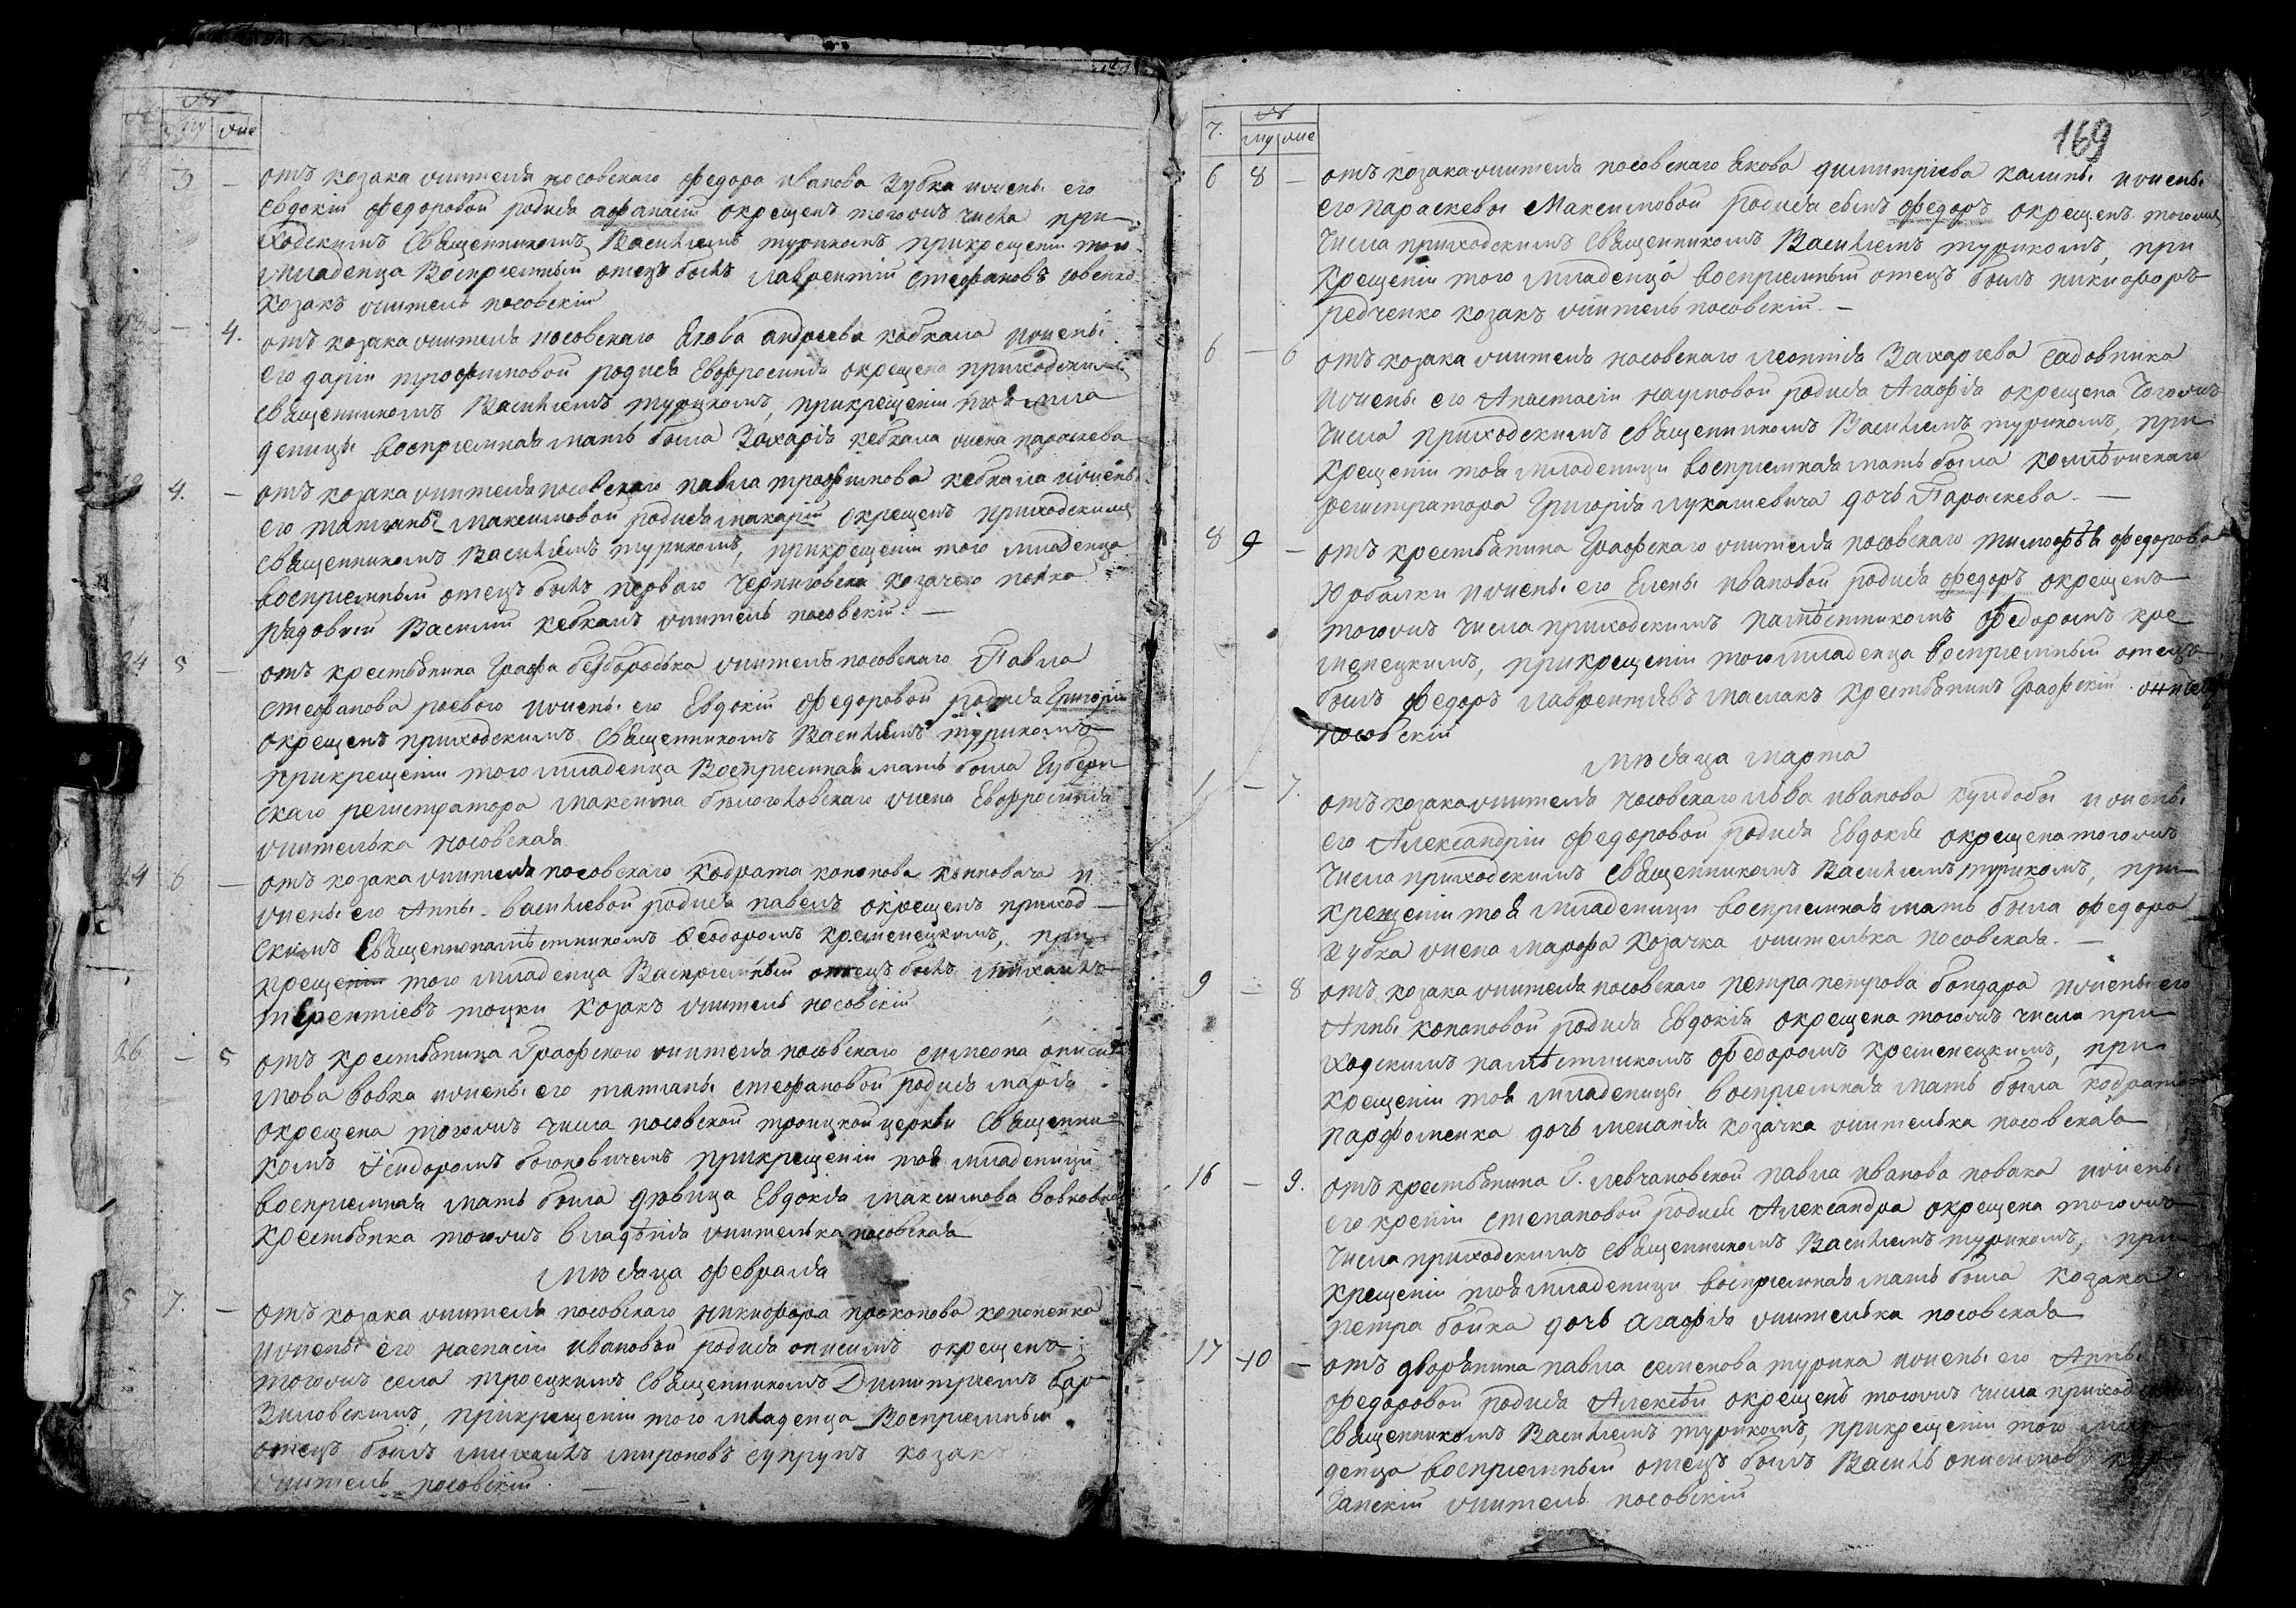 №
му
же
18 3 — отъ козака жителя носовскаго федора иванова Зубка ижены его
Евдокіи федоровой родися афанасій окрещенъ тогожъ числа при-
ходскимъ Священникомъ Василіемъ туриkомъ прикрещеніи того
младенца Воспріемный отецъ былъ лаврентій стефановъ
козакъ житель носовскій
— 4. отъ козака жителя носовскаго Якова андреева кобкала ижены
его даріи трофимовой родися Евфросинія окрещена приходскимъ
священникомъ Василіемъ турикомъ, прикрещеніи тоя мла
деницы воспріемная мать была Захарія кебкала жена параскева
4. — отъ козака жителя носовскаго павла трофимова кебкала ижены
его татіаны максимовой родися макарій окрещенъ приходскимъ
священникомъ Василіемъ турикомъ, прикрещеніи того младенца
воспріемный отецъ былъ перваго черниговска козачего полка
рядовый Василій кебкалъ житель носовскій. —
24 5 — отъ крестьянина Графа безбородька жителя носовскаго Павла
стефанова роевого ижены его Евдокіи федоровой родися Григорій
окрещенъ приходскимъ Священникомъ Василіемъ турикомъ
прикрещеніи того младенца Воспріемная мать была Губерн
скаго регистратора максима жена Евфросинія
жителька носовская
24 6 — отъ козака жителя носовскаго кодрата кононова и
жены его Анны василіевой родися павелъ окрещенъ приход
скимъ Священнонамѣстникомъ Феодоромъ кременецкимъ, при
крещеніи того младенца Воспріемный отецъ былъ михаилъ
терентіевъ козакъ житель носовскій
26 — 5 отъ крестьянина Графского жителя носовскаго симеона ониси
мова вовка ижены его татіаны стефановой родися марія
окрещена тогожъ числа носовской троицкой церкви Священни
комъ Ісидоромъ прикрещеніи тоя младеници
воспріемная мать была дѣвица Евдокія максимова вовковна
крестьянка тогожъ владѣнія жителька носовская
Мѣсяца февраля
5 7. — отъ козака жителя носовскаго никифора прокопова кононенка
ижены его настасіи ивановой родися онисимъ окрещенъ
тогожъ села троецкимъ Священникомъ Димитріемъ бар
Зиловскимъ, прикрещеніи того младенца Воспріемный
отецъ былъ михаилъ мироновъ супрунъ козак
житель носовскій. —
169
7.
№
му
же
6 8 — отъ козака жителя носовскаго Якова димитріева калины ижены
его параскевы Максимовой родися сынъ федоръ окрещенъ тогожъ
числа приходскимъ священникомъ Василіемъ турикомъ, при
крещеніи того младенца воспріемный отецъ былъ никифоръ
редченко козакъ житель носовскій. —
6 — 6 отъ козака жителя носовскаго леонтія Захаріева садовника
ижены его Анастасіи наумовой родися Агафія окрещена тогожъ
числа приходскимъ священникомъ Василіемъ турикомъ, при
крещеніи тоя младеници воспріемная мать была колѣжскаго
регистратора Григорія лукашевича дочь Параскева. —
8 9 — отъ крестьянина Графскаго жителя носовскаго тимофѣя федорова
ижены его Елены ивановой родися федоръ окрещенъ
тогожъ числа приходскимъ намѣстникомъ федоромъ кре
менецкимъ, прикрещеніи того младенца воспріемный отецъ
былъ федоръ лаврентіевъ маслакъ крестьянинъ Графскій житель
носовскій
мѣсяца марта
1 — 7. отъ козака жителя носовскаго льва иванова ижены
его Александріи федоровой родися Евдокія окрещена тогожъ
числа приходскимъ священникомъ Василіемъ турикомъ, при
крещеніи тоя младеници воспріемная мать была федора
Зубка жена марфа козачка жителька носовская. —
9 — 8 отъ козака жителя носовскаго петра петрова бондара ижены его
Анны кононовой родися Евдокія окрещена тогожъ числа при
ходскимъ намѣстникомъ федоромъ кременецкимъ, при
крещеніи тоя младеницы воспріемная мать была кодрата
парфоменка дочь меланія козачка жителька носовская
16 — 9. отъ крестьянина Г. левчановской павла иванова новака ижены
его ксеніи степановой родися Александра окрещена тогожъ
числа приходскимъ священникомъ Василіемъ турикомъ, при
крещеніи тоя младеници воспріемная мать была козака
петра бойка дочь агафія жителька носовская
17 10 — отъ дворянина павла семенова турика ижены его Анны
федоровой родися Алексѣй окрещенъ тогожъ числа приходскимъ
священникомъ Василіемъ турикомъ, прикрещеніи того мла
денца воспріемный отецъ былъ Василь онисимовъ
житель носовскій